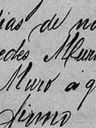 dias de no
edes Muro
Muro a q
firmo